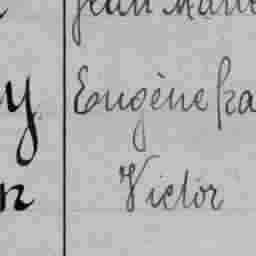 Jean Marie
y Eugène fra
n Victor